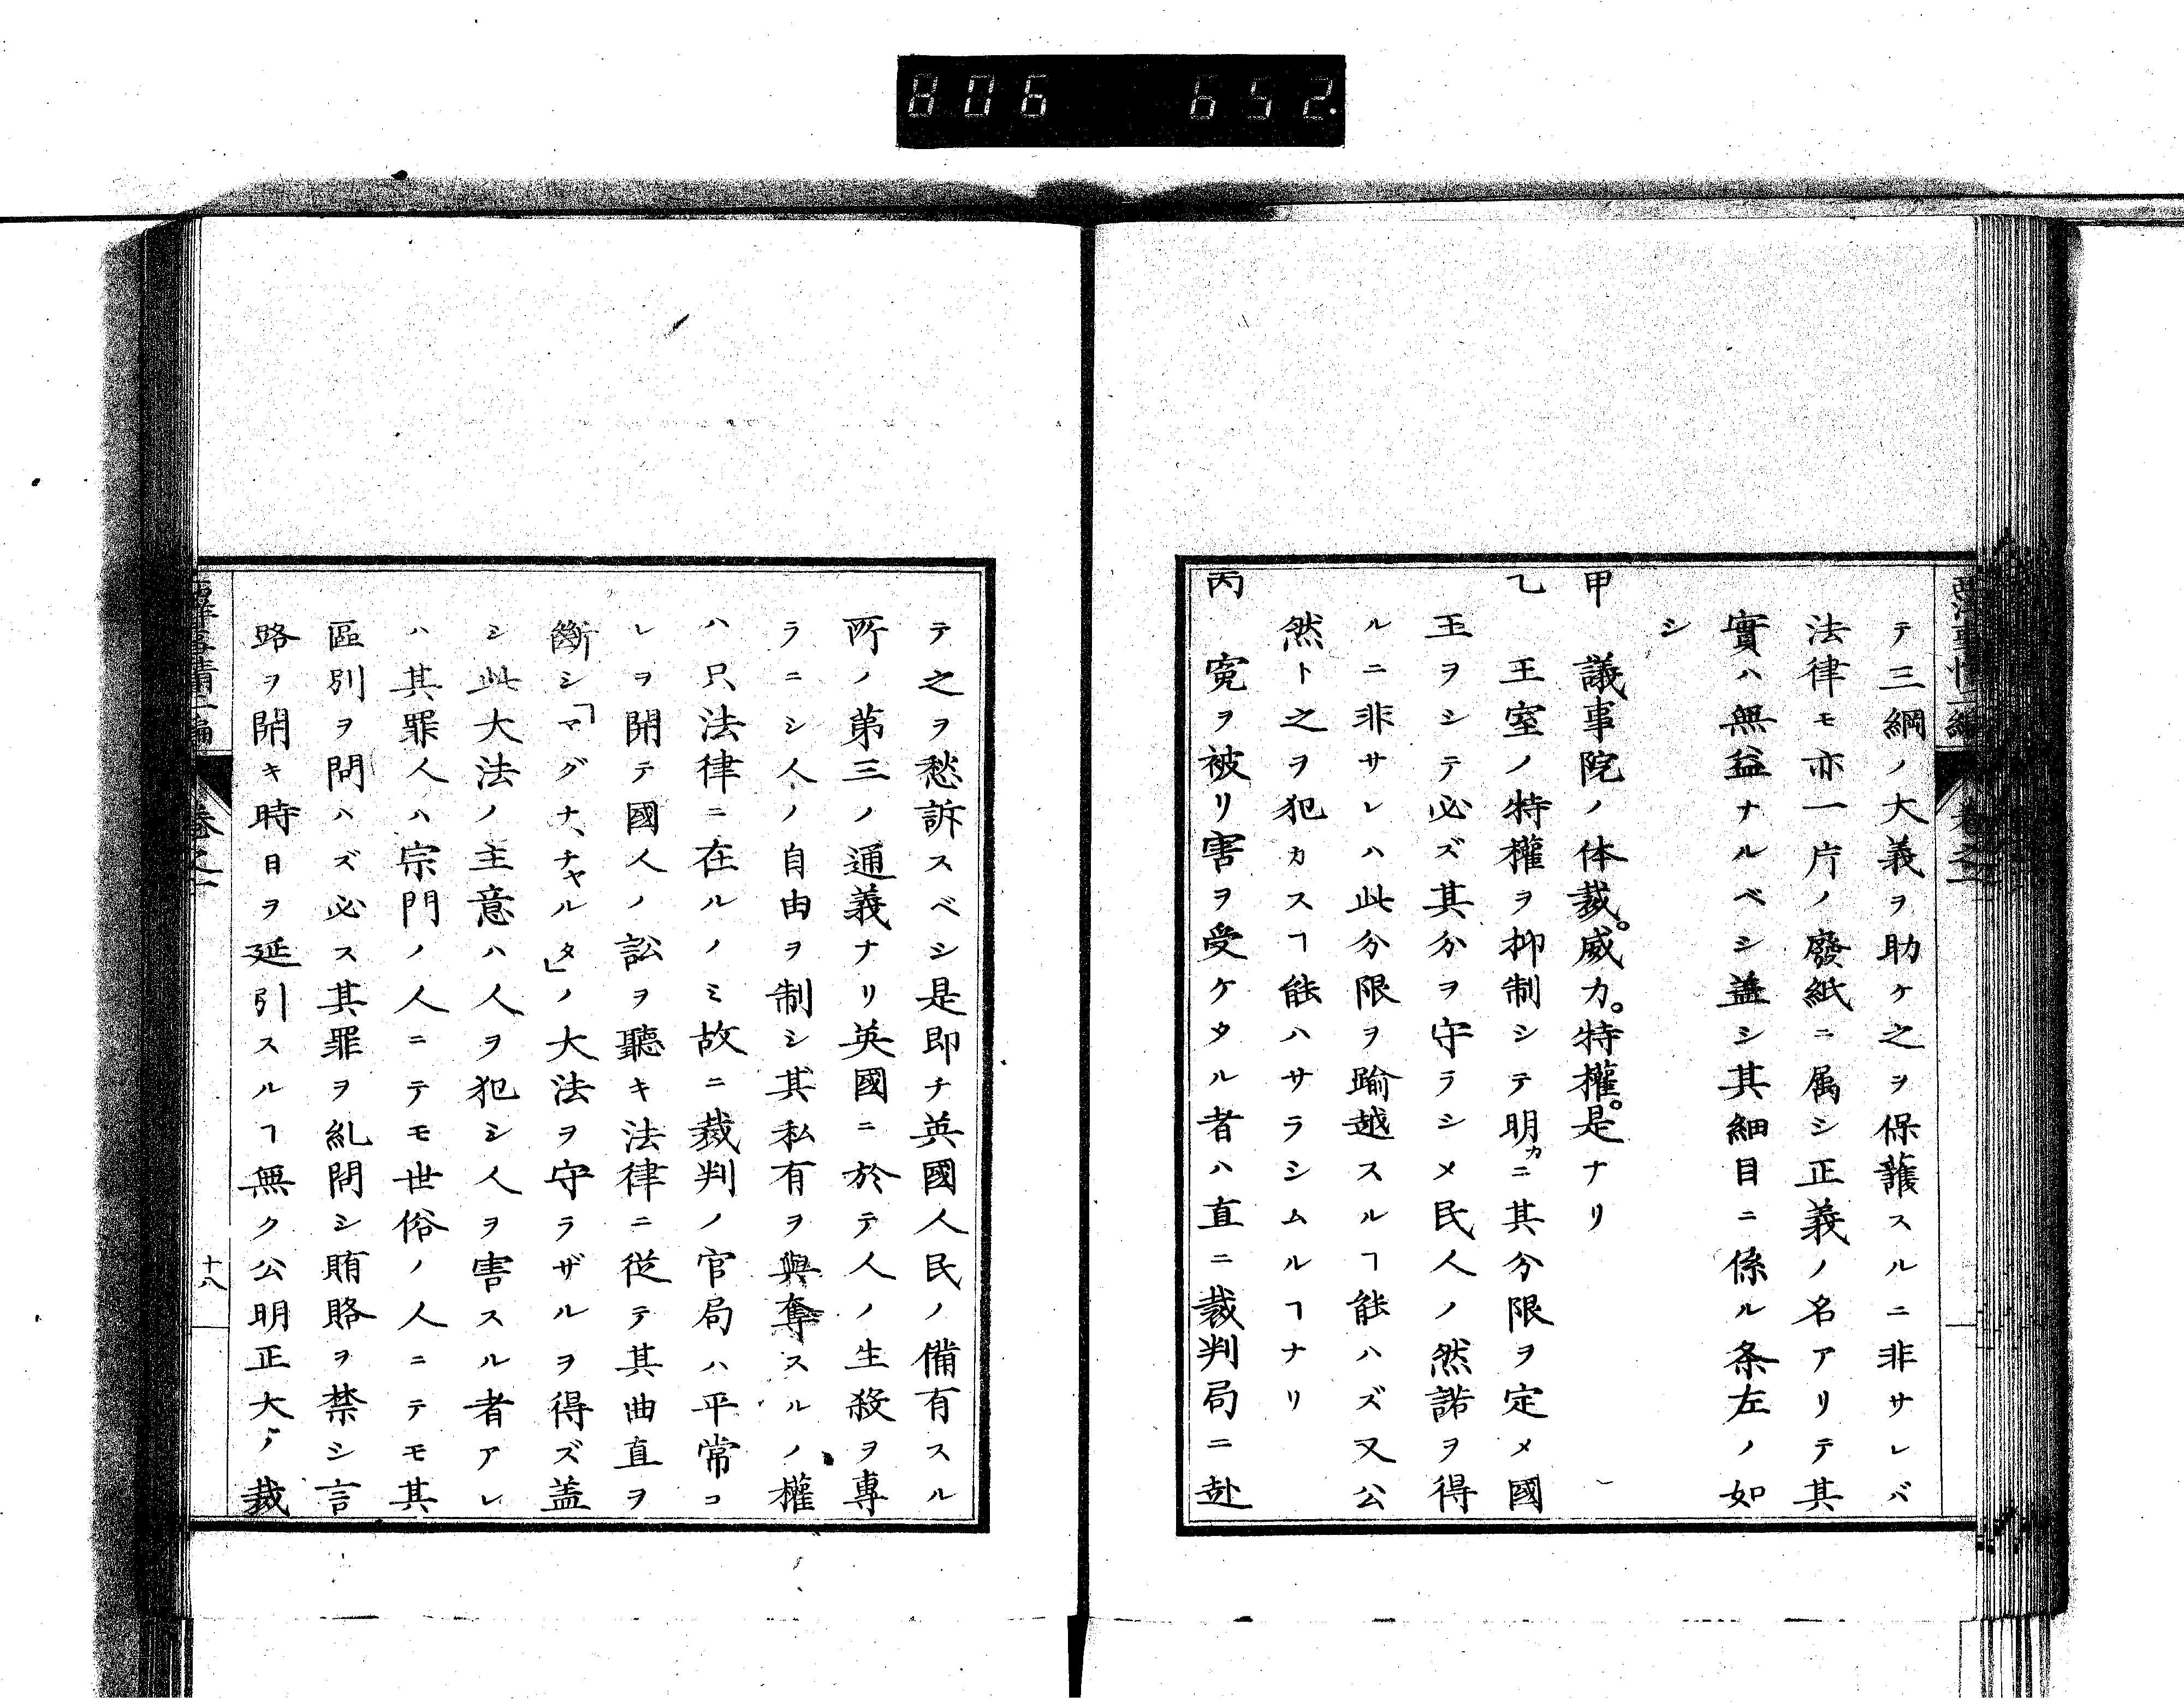 806 652.
西洋事情二編 卷之一
テ三綱ノ大義ヲ助ケ之ヲ保護スルニ非サレバ
法律モ亦一片ノ廢紙ニ属シ正義ノ名アリテ其
實ハ無益ナルベシ蓋シ其細目ニ係ル条左ノ如
シ
甲 議事院ノ体裁。威力。特權。是ナリ
乙 王室ノ特權ヲ抑制シテ明カニ其分限ヲ定メ國
王ヲシテ必ズ其分ヲ守ラシメ民人ノ然諾ヲ得
ルニ非サレハ此分限ヲ踰越スルヿ能ハズ又公
然ト之ヲ犯カスヿ能ハサラシムルヿナリ
丙 寃ヲ被リ害ヲ受ケタル者ハ直ニ裁判局ニ赴
テ之ヲ愁訴スベシ是即チ英國人民ノ備有スル
所ノ第三ノ通義ナリ英國ニ於テ人ノ生殺ヲ專
ラニシ人ノ自由ヲ制シ其私有ヲ與奪スルノ權
ハ只法律ニ在ルノミ故ニ裁判ノ官局ハ平常コ
レヲ開テ國人ノ訟ヲ聽キ法律ニ從テ其曲直ヲ
斷シ「マグナ、チャルタ」ノ大法ヲ守ラザルヲ得ズ蓋
シ此大法ノ主意ハ人ヲ犯シ人ヲ害スル者アレ
ハ其罪人ハ宗門ノ人ニテモ世俗ノ人ニテモ其
區別ヲ問ハズ必ス其罪ヲ糺問シ賄賂ヲ禁シ言
路ヲ開キ時日ヲ延引スルヿ無ク公明正大ノ裁
西洋事情二編 卷之一 十八